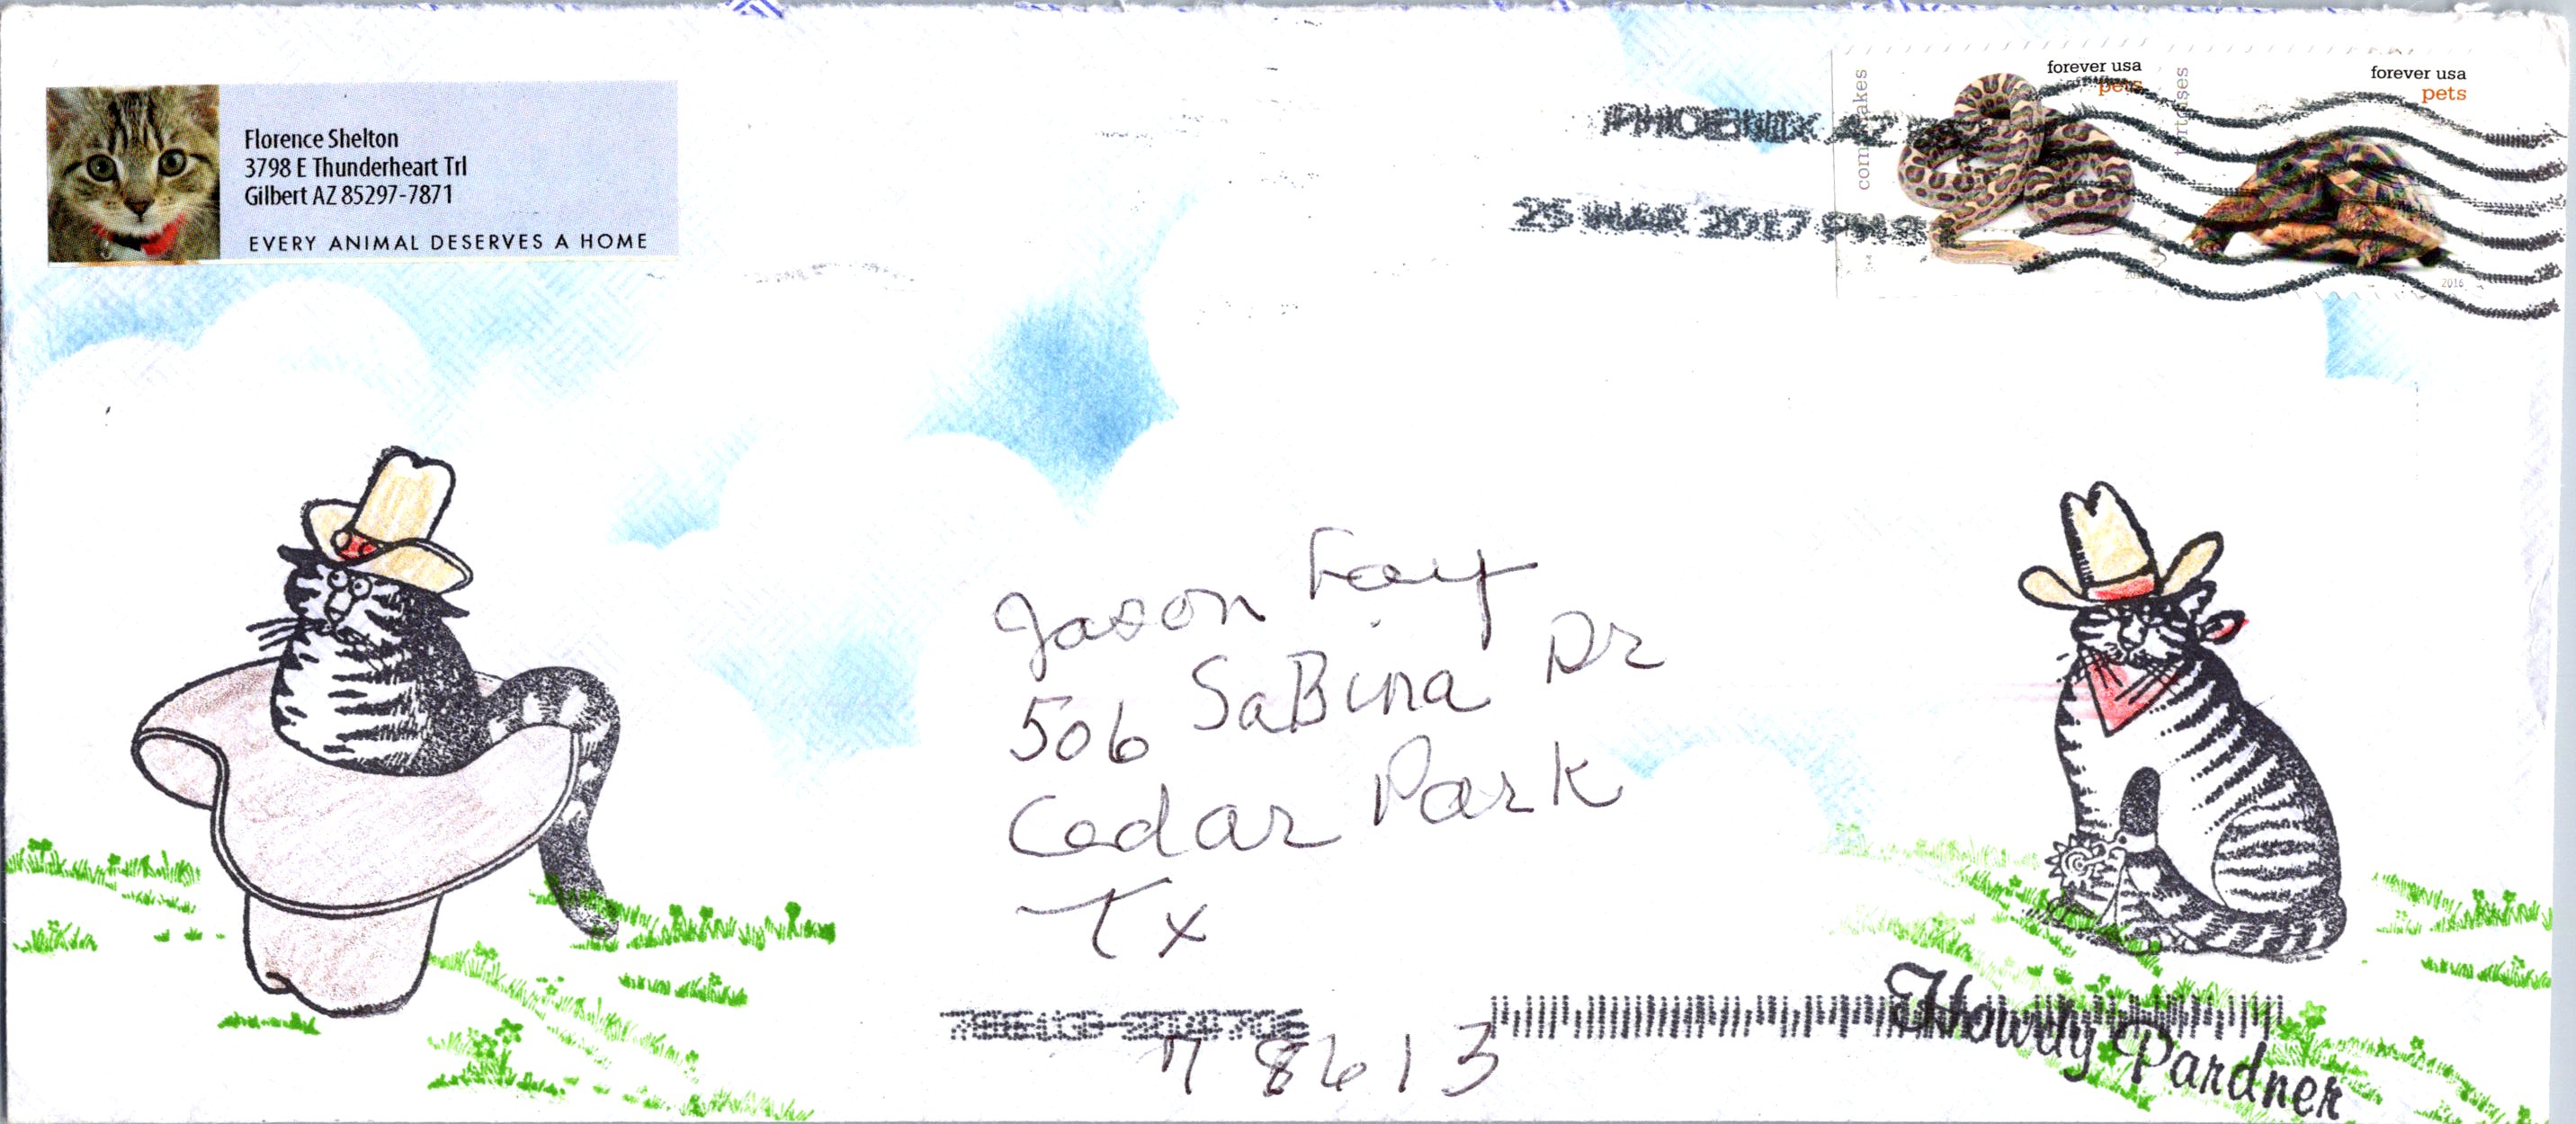 Florence Shelton
3798 E Thunderheart Trl
Gilbert AZ 85297-7871
EVERY ANIMAL DESERVES A HOME
PHOENIX AZ
25 MAR 2017 PM
forever usa
pets
2016
forever usa
pets
2016
Jason Fay
506 SaBina Dr
Cedar Park
Tx
78613
Howdy Pardner